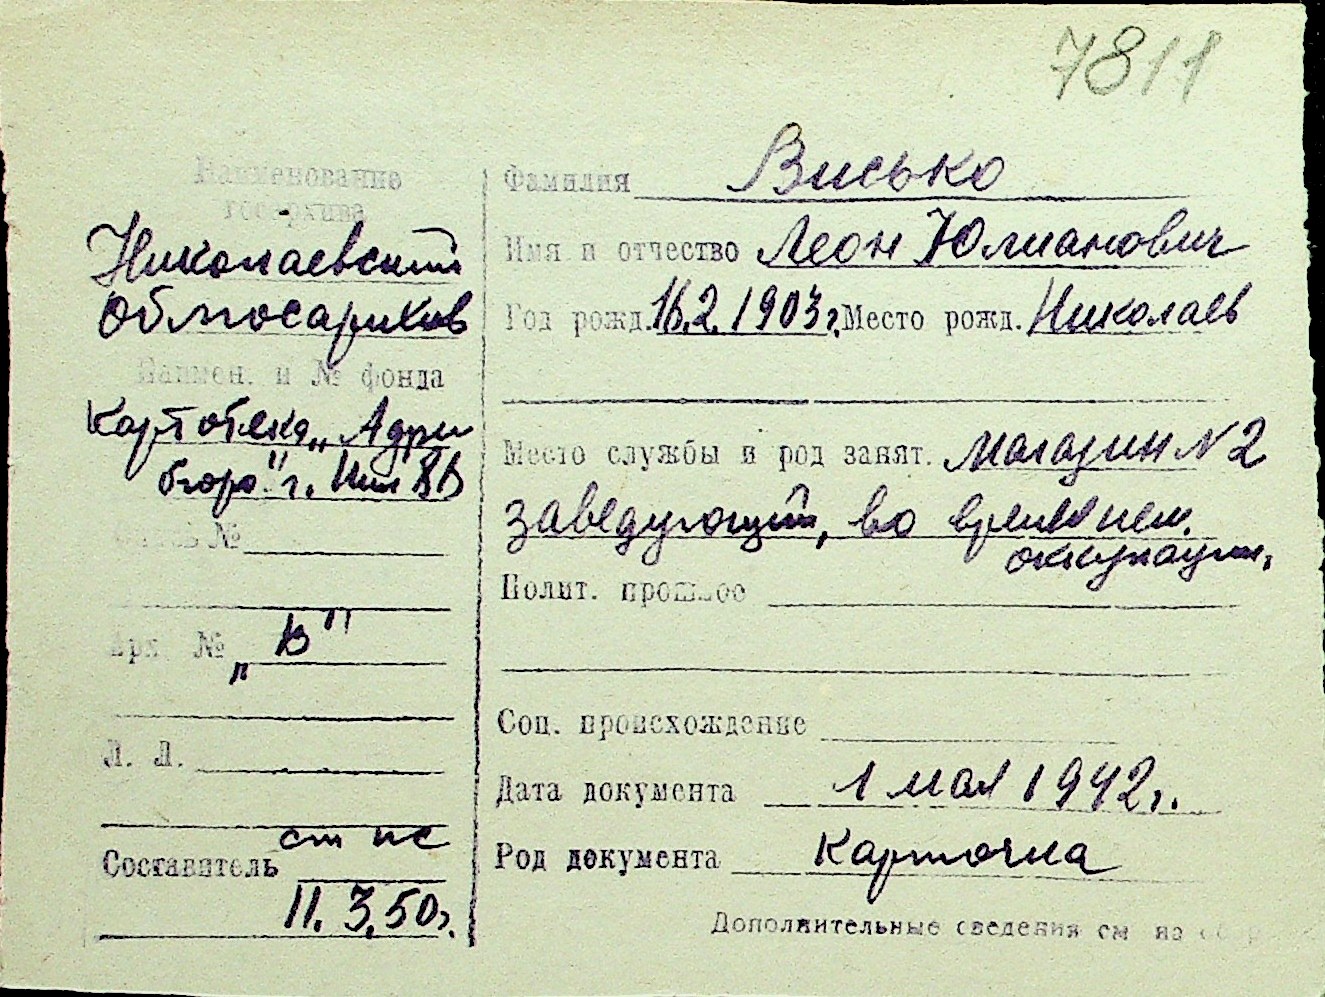 7811
Наименование
госархива
Николаевский
Облгосархив
Наимен. и № фонда
Картотека „Адри
бюро" г. Ник
Опись №
Арх. № „В"
Л. Л.
Составитель ст нс
11.3.50г.
Фамилия Висько
Имя и отчество Леон Юлианович
Год рожд. 16.2.1903г. Место рожд. Николаев
Место службы и род занят. магазин N2
заведующий, во время нем.
оккупации.
Полит. прошлое
Соц. происхождение
Дата документа 1 мая 1942г.
Род документа Карточка
Дополнительные сведения см на обор